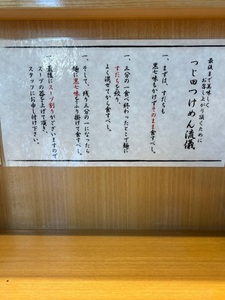 最後まで美味しく
お召し上がり頂くために
つじ田つけめん流儀
一、まずは、すだちも
黒七味もかけずそのまま食すべし。
一、三分の一食べ終わったところで麺に
すだちを絞り、
よく混ぜてから食すべし。
一、そして、残り三分の一になったら
麺に黒七味をふり掛けて食すべし。
最後にスープ割りがございますので
スープの器を上げて頂き、
スタッフにお申し付け下さい。